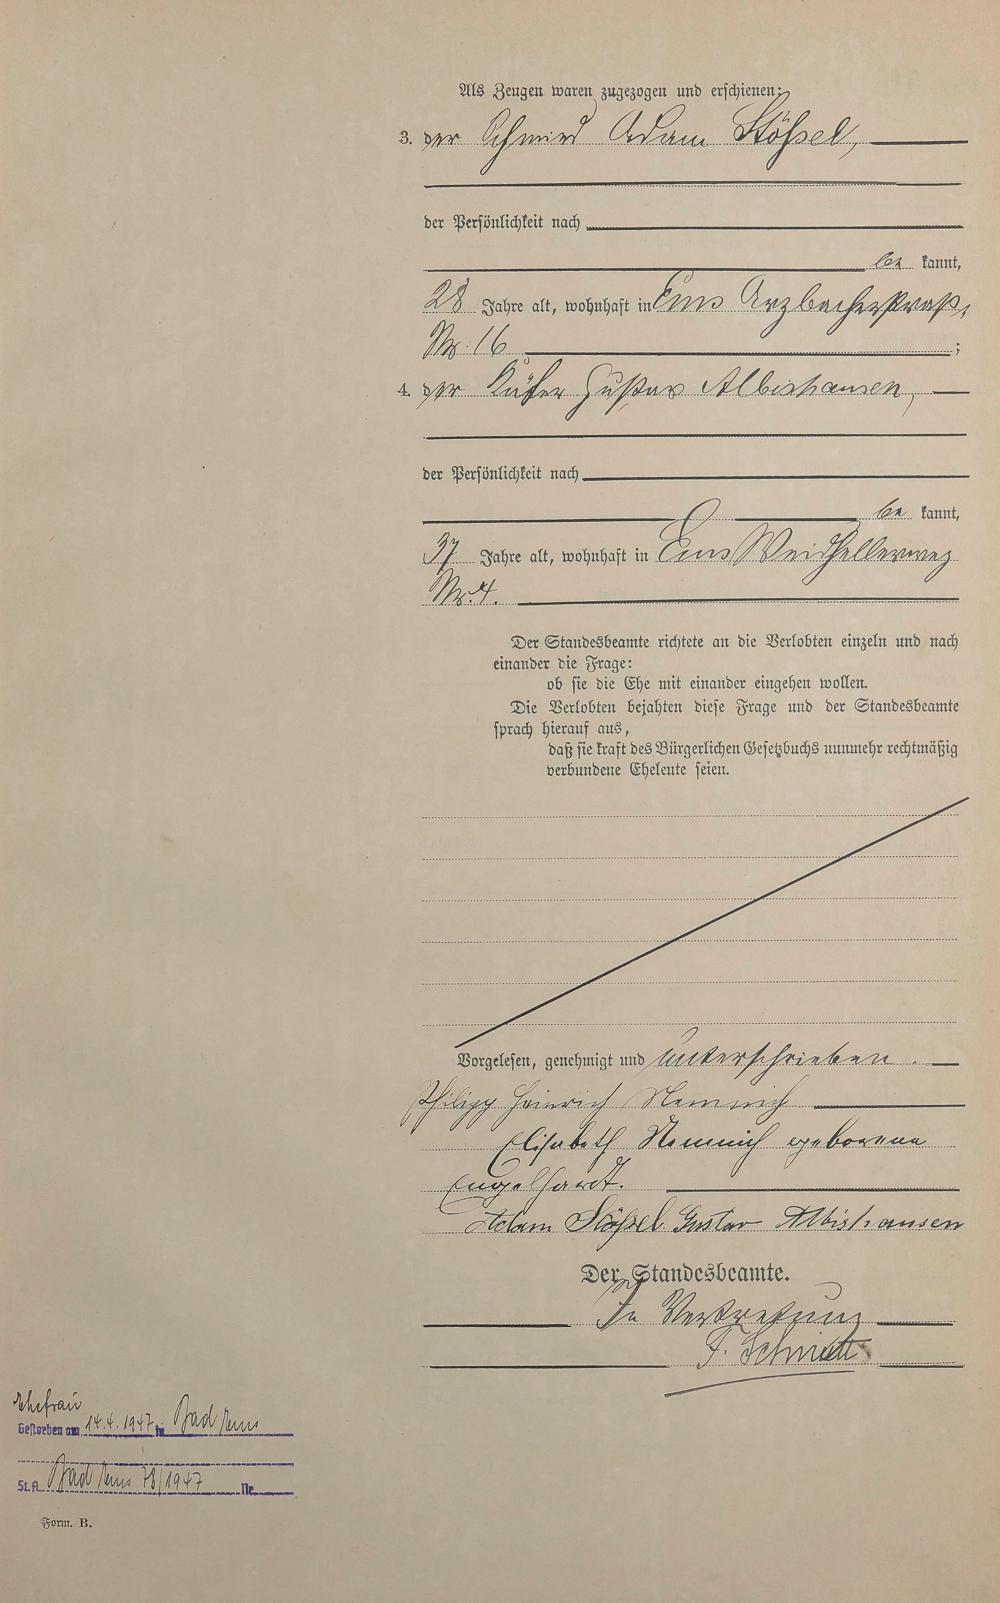 Als Zeugen waren zugezogen und erschienen:
3. der Schmied Adam Stößel,
der Persönlichkeit nach
be kannt,
28 Jahre alt, wohnhaft in Ems Arzbacherstraß,
Nr. 16 ;
4. der Küfer Gustav Albishausen,
der Persönlichkeit nach
be kannt,
37 Jahre alt, wohnhaft in Ems Weidhellerweg
Nr. 4.
Der Standesbeamte richtete an die Verlobten einzeln und nach
einander die Frage:
ob sie die Ehe mit einander eingehen wollen.
Die Verlobten bejahten diese Frage und der Standesbeamte
sprach hierauf aus,
daß sie kraft des Bürgerlichen Gesetzbuchs nunmehr rechtmäßig
verbundene Eheleute seien.
Vorgelesen, genehmigt und unterschrieben.
Philipp Heinrich Nemnich
Elisabeth Nemnich geborene
Engelhardt.
Adam Stößel Gustav Albishausen
Der Standesbeamte.
In Vertretung
F. Schmidt
Ehefrau
Gestorben am 14.4.1947 in Bad Ems
St.A. Bad Ems 78/1947 Nr.
Form. B.